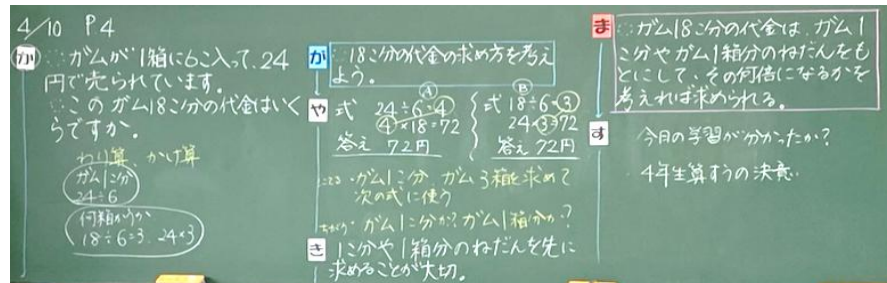 4/10 P4
か ガムが1箱に6こ入って、24
円で売られています。
このガム18こ分の代金はいく
らですか。
わり算、かけ算
ガム1こ分
24÷6
何箱分か
18÷6=3 24×3
が 18こ分の代金の求め方を考え
よう。
や
Ⓐ
式 24÷6=4
4×18=72
答え 72円
Ⓑ
式 18÷6=3
24×3=72
答え 72円
ガム1こ分 ガム3箱を求めて
次の式に使う
ちがう ガム1こ分か?ガム1箱分か?
き 1こ分や1箱分のねだんを先に
求めることが大切。
ま ガム18こ分の代金は、ガム1
こ分やガム1箱分のねだんをも
とにして、その何倍になるかを
考えれば求められる。
す 今日の学習が分かったか?
4年生算すうの決意…